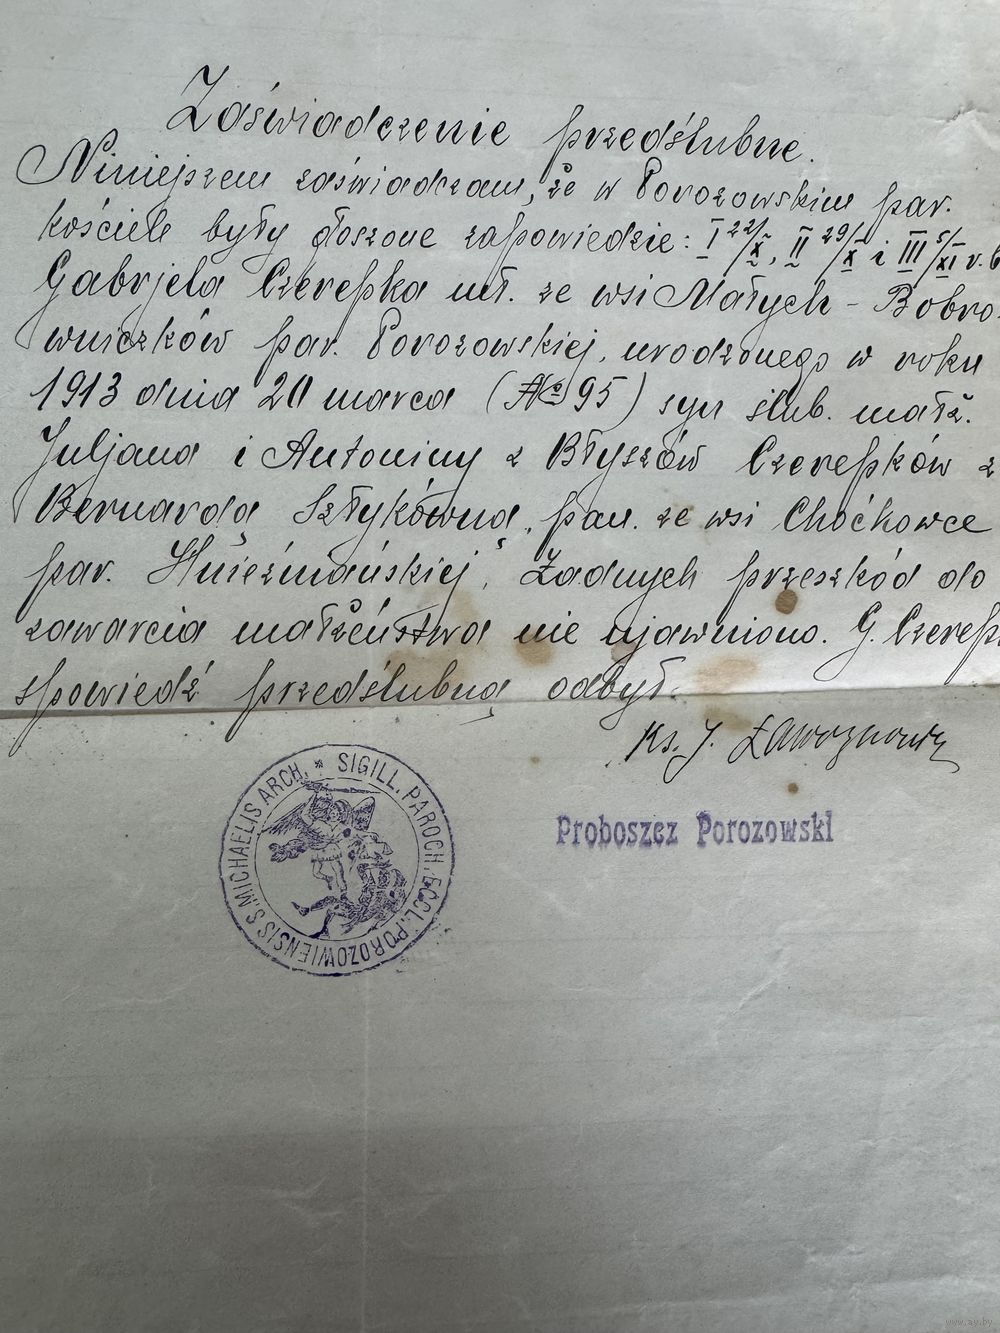 Zaświadczenie przedślubne.
Niniejszem zaświadczam, że w Porozowskim par.
kościele były głoszone zapowiedzie: I 22/X, II 29/X i III 5/XI r. b
Gabrjela Czerepka mł. ze wsi Małych-Bobro-
wniczków par. Porozowskiej, urodzonego w roku
1913 dnia 20 marca (№ 95) syn ślub. małż.
Juljana i Antoniny z Błyszów Czerepków z
Bernardą Sztykówną, pan. ze wsi Choćkowce
par. Hnieźniańskiej. Żadnych przeszkód do
zawarcia małżeństwa nie ujawniono. G. Czerep
spowiedź przedślubną odbył.
Ks. J.
Proboszcz Porozowski
SIGILL. PAROCH. ECCL. POROZOWIENSIS S. MICHAELIS ARCH. *
www.ay.by